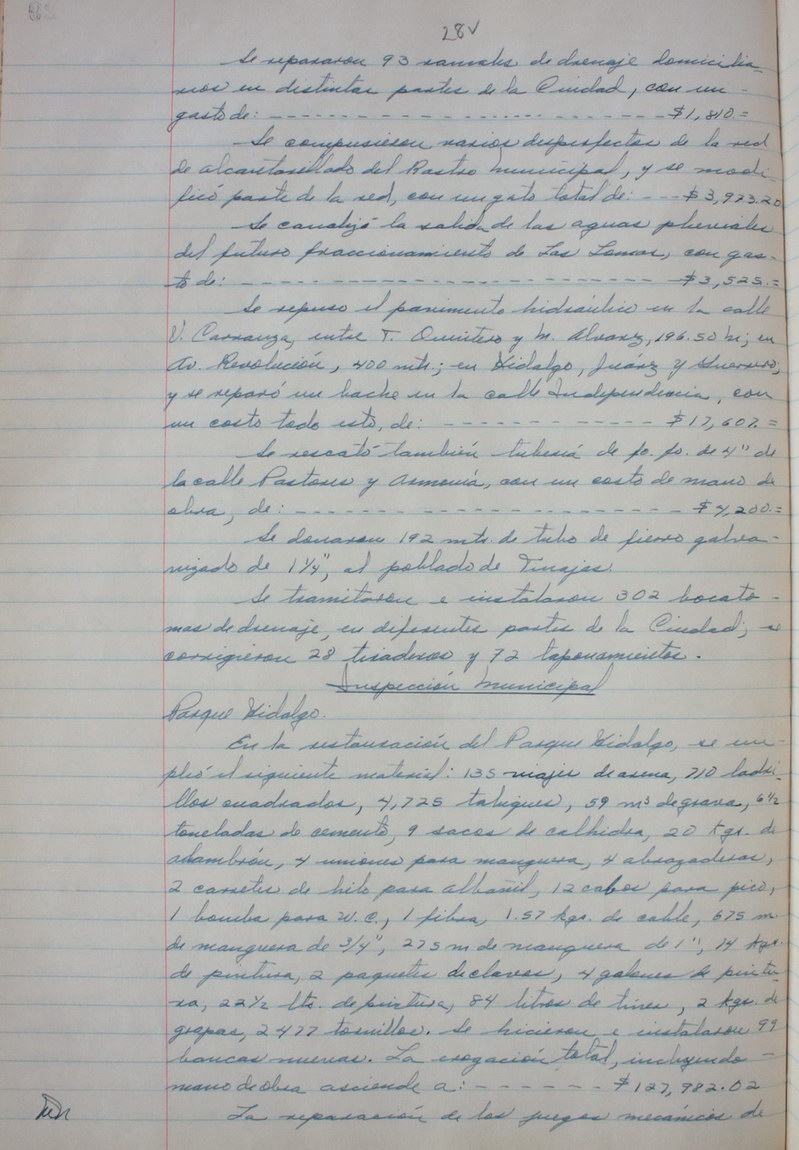 28v
Se repararon 93 ramales de drenaje domicilia-
rios en distintas partes de la Ciudad, con un -
gasto de: - - - - - - - - - - - - - - - - - - $1,810.=
Se compusieron varios desperfectos de la red
de alcantarillado del Rastro Municipal, y se modi-
ficó parte de la red, con un gsto total de: - - - $3,973.20
Se canalizó la salida de las aguas pluviales
del futuro fraccionamiento de Las Lomas, con gas-
to de: - - - - - - - - - - - - - - - - - - $3,525.=
Se repuso el pavimento hidráulico en la calle
V. Carranza, entre T. Quintero y M. Alvarez, 196.50 m; en
Av. Revolución, 400 mts; en Hidalgo, Juárez y Guerrero,
y se reparó un bache en la calle Independencia, con
un costo todo esto, de: - - - - - - - - - - - $17,607.=
Se rescató también tubería de fo. fo. de 4" de
la calle Pastores y Armonía, con un costo de mano de
obra, de: - - - - - - - - - - - - - - - - - $4,200.=
Se donaron 192 mts. de tubo de fierro galva-
nizado de 1¼", al poblado de Tinajas.
Se tramitaron e instalaron 302 bocato-
mas de drenaje, en diferentes partes de la Ciudad; se
corrigieron 28 tiraderos y 72 taponamientos.
Inspección Municipal
Parque Hidalgo.
En la restauración del Parque Hidalgo, se em-
pleó el siguiente material: 135 viajes de arena, 710 ladri-
llos cuadrados, 4,725 tabiques, 59 m³ de grava, 6½
toneladas de cemento, 9 sacos de calhidra, 20 Kgs. de
alambrón, 4 uniones para manguera, 4 abrazaderas,
2 carretes de hilo para albañil, 12 cabos para pico,
1 bomba para W.C., 1 fibra, 1.57 kgs. de cable, 675 m
de manguera de 3/4", 275 m de manguera de 1", 14 kgs.
de pintura, 2 paquetes de clavos, 4 galones de pintu-
ra, 22½ lts. de pintura, 84 litros de tiner, 2 kgs. de
grapas, 2477 tornillos. Se hicieron e instalaron 99
bancas nuevas. La erogación total, incluyendo -
mano de obra asciende a: - - - - - - $127,982.02
La reparación de los juegos mecánicos de